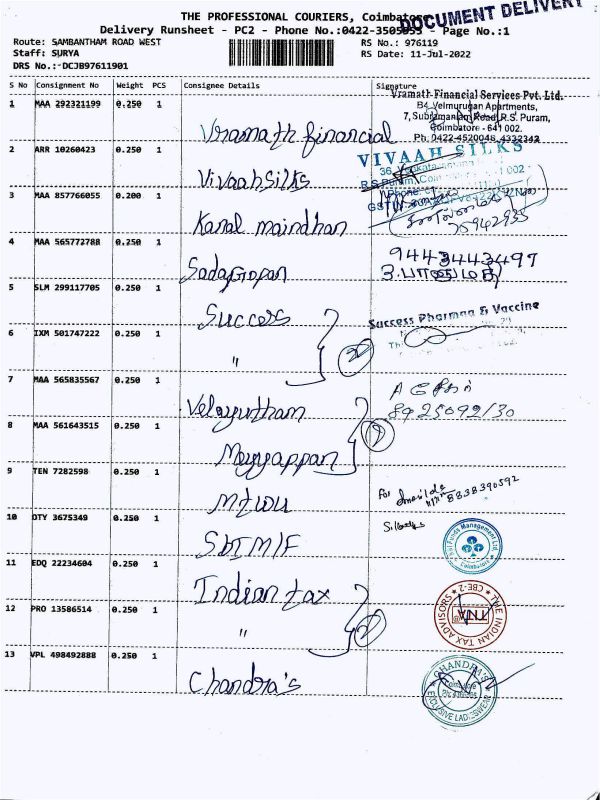 THE PROFESSIONAL COURIERS, Coimbatore
DOCUMENT DELIVERY
Delivery Runsheet - PC2 - Phone No.:0422-3505053 - Page No.:1
Route: SAMBANTHAM ROAD WEST
RS No.: 976119
Staff: SURYA
RS Date: 11-Jul-2022
DRS No.:-DCJB97611901
S No Consignment No Weight PCS Consignee Details Signature
1 MAA 292321199 0.250 1 Vramath financial
Vramath Financial Services Pvt. Ltd.
B4 Velmurugan Apartments,
7, Subramaniam Road, R.S. Puram,
Coimbatore - 641 002.
Ph: 0422-4520048, 4332342
2 ARR 10260423 0.250 1 Vivaahsilks
VIVAAH SILKS
3 MAA 857766055 0.200 1 Kanal maindhan
75942935
4 MAA 565772788 0.250 1 Sadagopan
9443443497
5 SLM 299117705 0.250 1 Success
Success Pharmaa & Vaccine
6 IXM 501747222 0.250 1 "
2
7 MAA 565835567 0.250 1 Velayutham
8925092130
8 MAA 561643515 0.250 1 Meyyappan
9 TEN 7282598 0.250 1
For
8838390592
10 OTY 3675349 0.250 1 SBIM/F
Funds Management Ltd.
Coimbatore
11 EDQ 22234604 0.250 1 Indian tax
THE INDIAN TAX ADVISORS
CBE-2
TNTA
12 PRO 13586514 0.250 1 "
2
13 VPL 498492888 0.250 1 Chandra's
CHANDRA'S
EXCLUSIVE LADIESWEAR